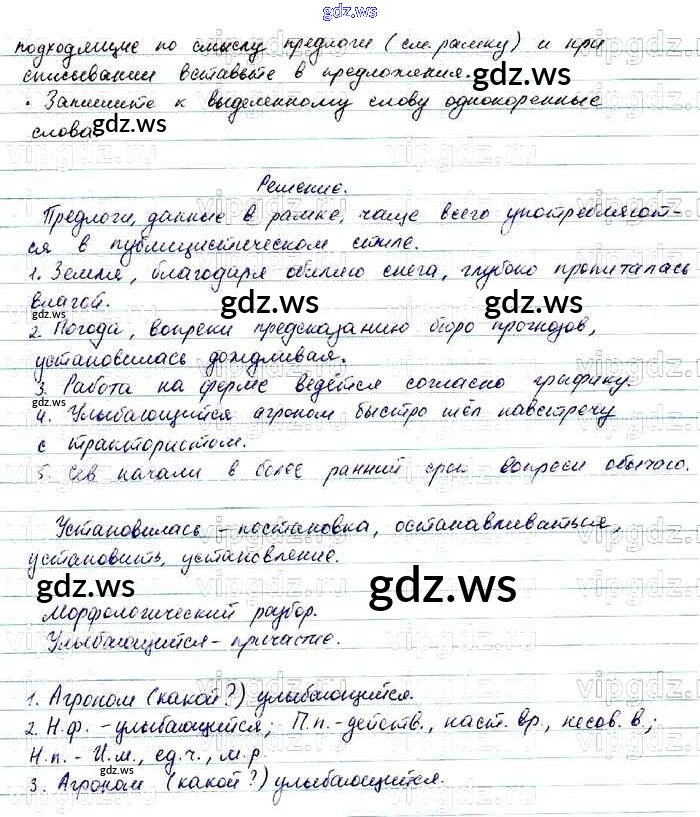 gdz.ws
подходящие по смыслу предлоги (см. рамку) и при
списывании вставьте в предложения.
gdz.ws
• Запишите к выделенному слову однокоренные
слова
gdz.ws
Решение.
Предлоги, данные в рамке, чаще всего употребляют-
ся в публицистическом стиле.
1. Земля, благодаря обилию снега, глубоко пропиталась
влагой.
gdz.ws gdz.ws gdz.ws
2. Погода, вопреки предсказанию бюро прогнозов,
установилась дождливая.
3. Работа на ферме ведётся согласно графику.
gdz.ws
4. Улыбающийся агроном быстро шёл навстречу
с трактористом.
5. Сев начали в более ранний срок вопреки обычаю.
Установилась - постановка, останавливаться,
установить, установление.
gdz.ws gdz.ws
Морфологический разбор.
Улыбающийся - причастие.
1. Агроном (какой?) улыбающийся.
2. Н.ф. - улыбающийся; П.п. - действ., наст. вр., несов. в.;
Н.п. - И.п., ед.ч., м.р.
gdz.ws
3. Агроном (какой?) улыбающийся.
gdz.ws